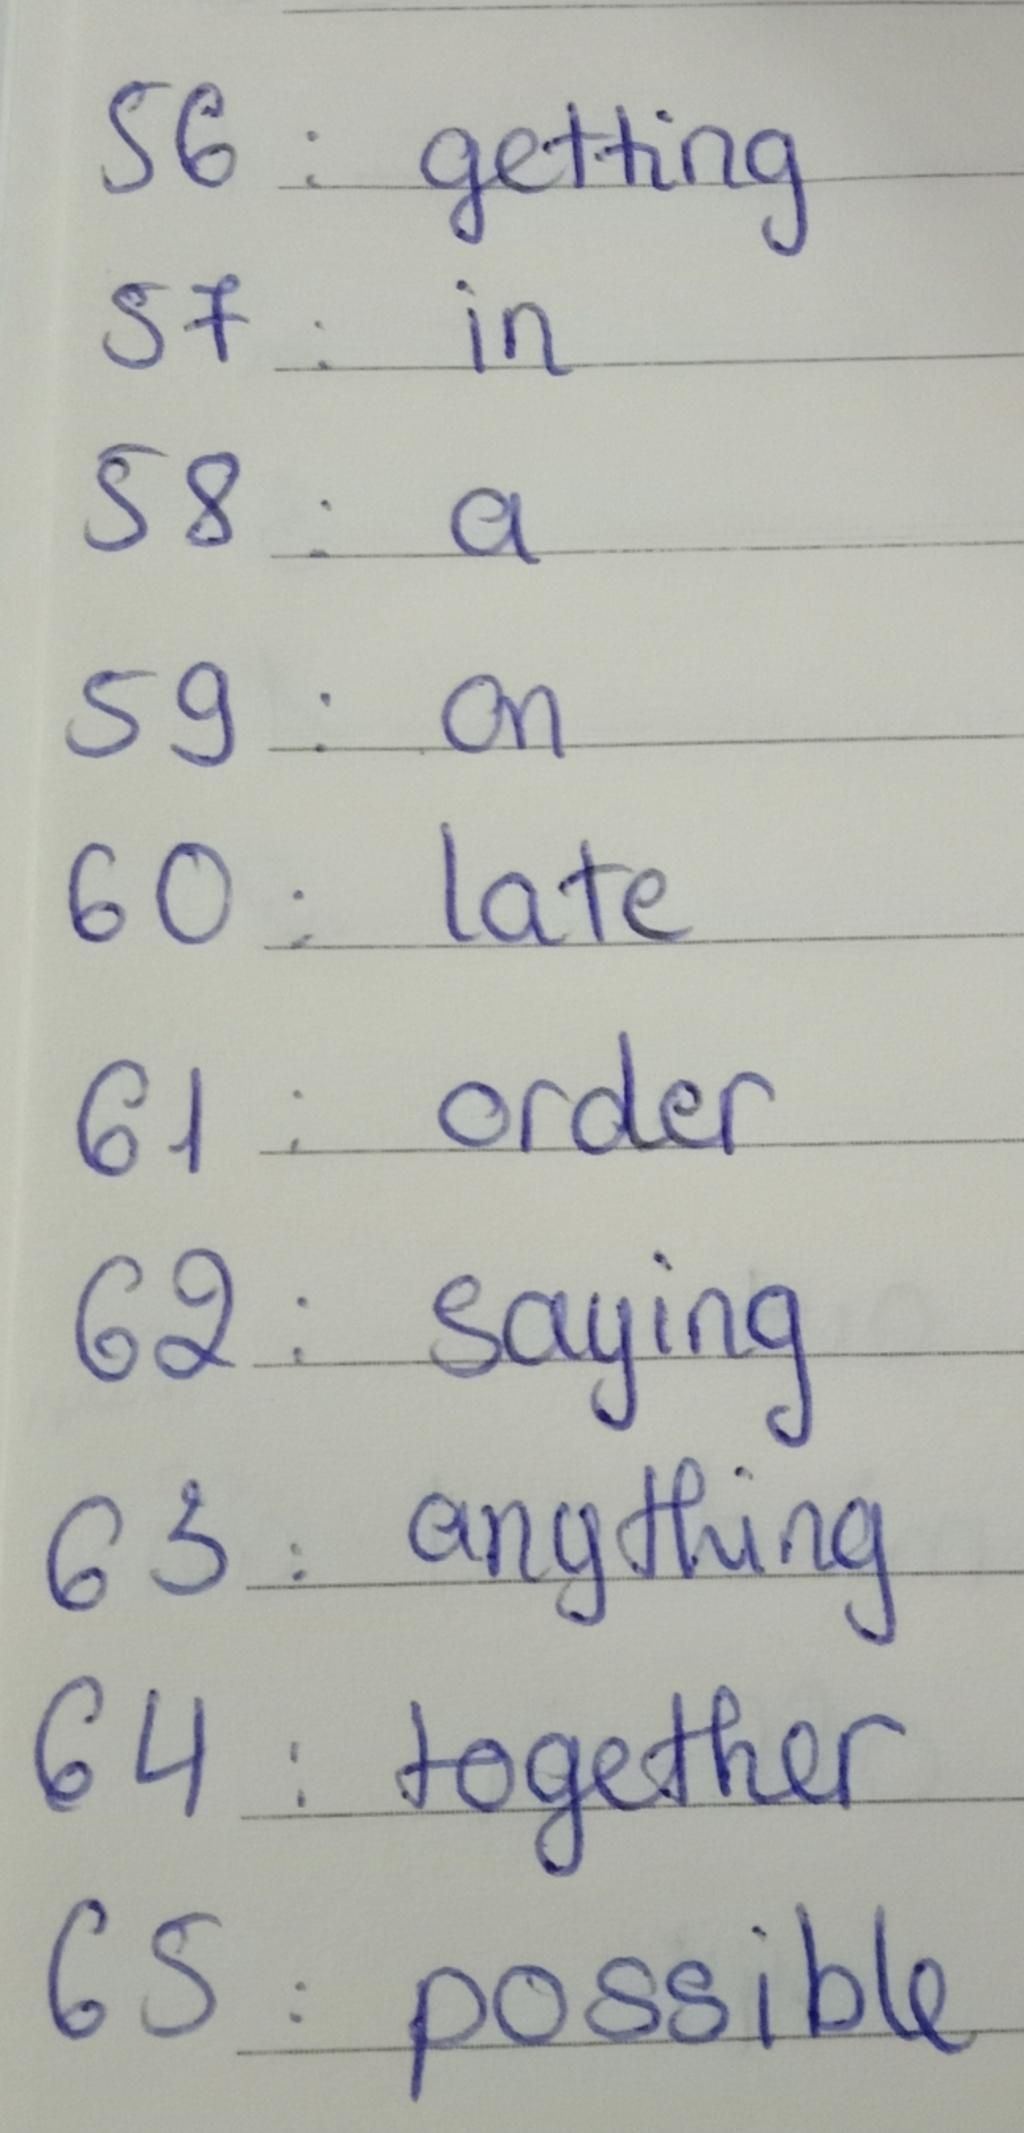 56 : getting
57 : in
58 : a
59 : on
60 : late
61 : order
62 : saying
63 : anything
64 : together
65 : possible